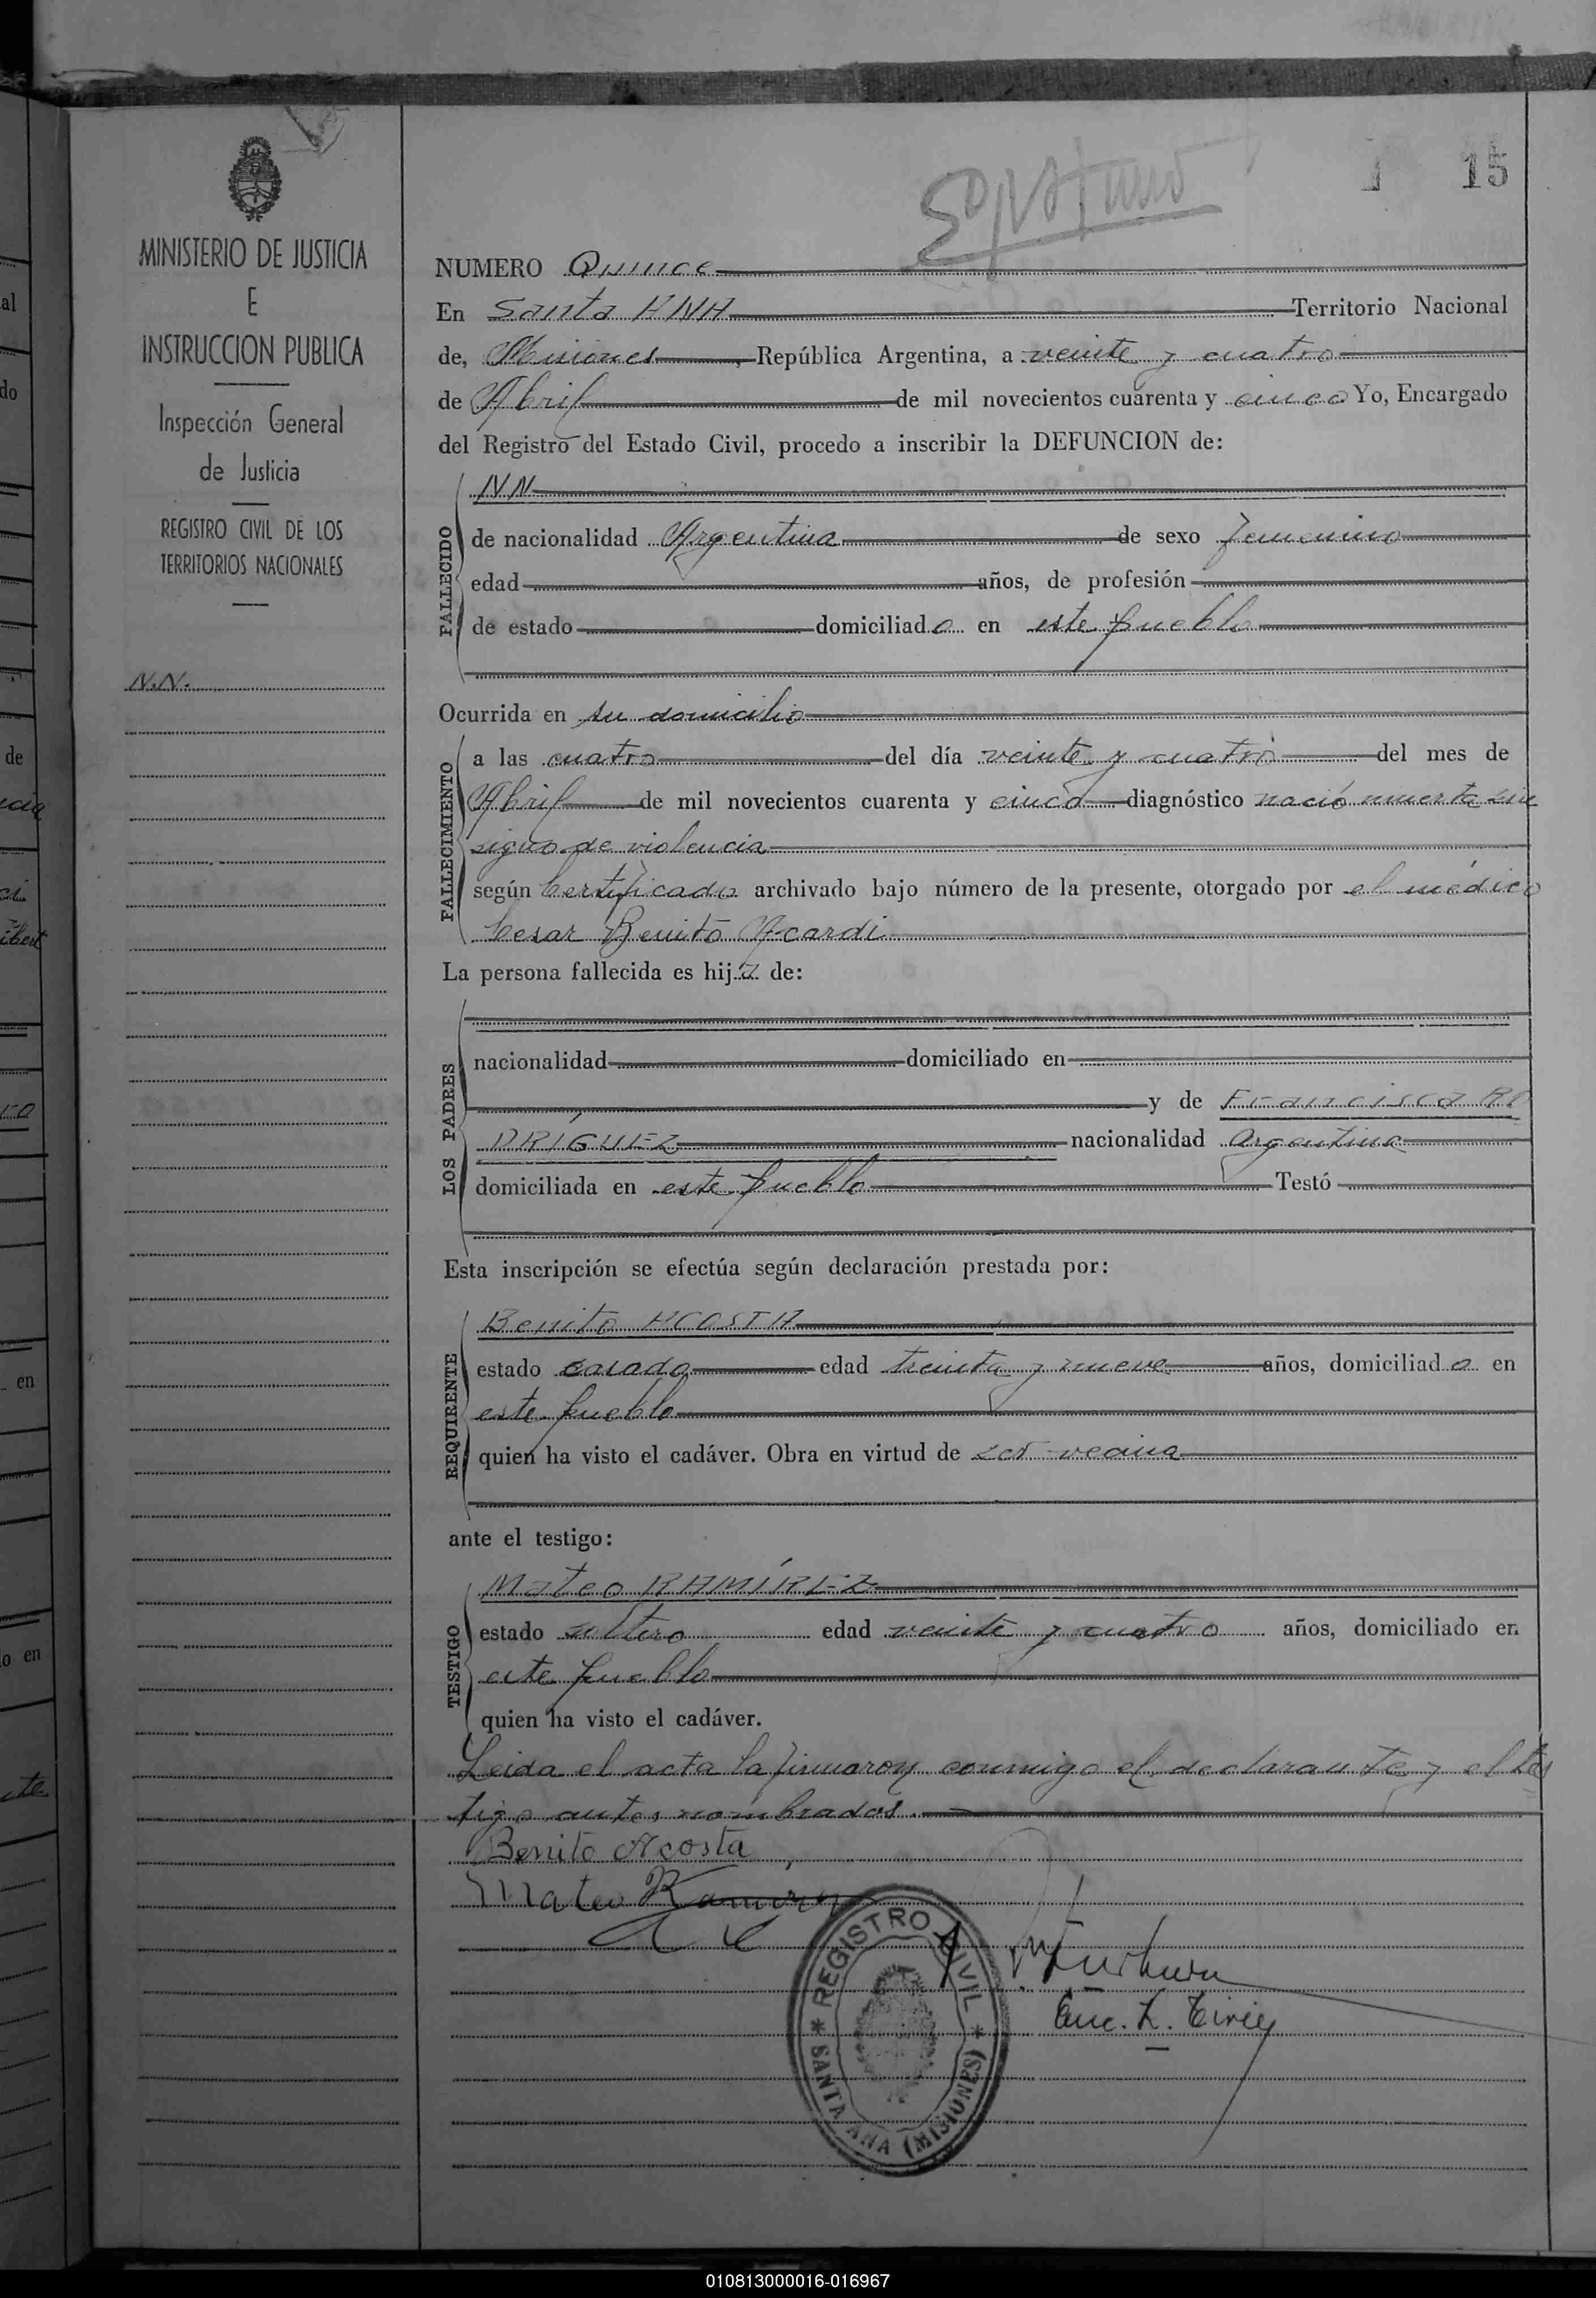 15
MINISTERIO DE JUSTICIA
E
INSTRUCCION PUBLICA
Inspección General
de Justicia
REGISTRO CIVIL DE LOS
TERRITORIOS NACIONALES
N.N.
NUMERO Quince
En Santa ANA Territorio Nacional
de, Misiones, República Argentina, a veinte y cuatro
de Abril de mil novecientos cuarenta y cinco Yo, Encargado
del Registro del Estado Civil, procedo a inscribir la DEFUNCION de:
FALLECIDO
NN
de nacionalidad Argentina de sexo femenino
edad años, de profesión
de estado domiciliado en este pueblo
Ocurrida en su domicilio
FALLECIMIENTO
a las cuatro del día veinte y cuatro del mes de
Abril de mil novecientos cuarenta y cinco diagnóstico nació muerta sin
signo de violencia
según Certificado archivado bajo número de la presente, otorgado por el médico
Cesar Benito Acardi
La persona fallecida es hija de:
LOS PADRES
nacionalidad domiciliado en
y de Francisca RO
DRÍGUEZ nacionalidad argentina
domiciliada en este pueblo Testó
Esta inscripción se efectúa según declaración prestada por:
REQUIRENTE
Benito ACOSTA
estado casado edad treinta y nueve años, domiciliado en
este pueblo
quien ha visto el cadáver. Obra en virtud de ser vecino
ante el testigo:
TESTIGO
Mateo RAMÍREZ
estado soltero edad veinte y cuatro años, domiciliado en
este pueblo
quien ha visto el cadáver.
Leida el acta la firmaron conmigo el declarante y el tes
tigo antes nombrados.
Benito Acosta
Mateo Ramirez
REGISTRO CIVIL
* SANTA ANA (MISIONES) *
Enc. R. Civil
010813000016-016967